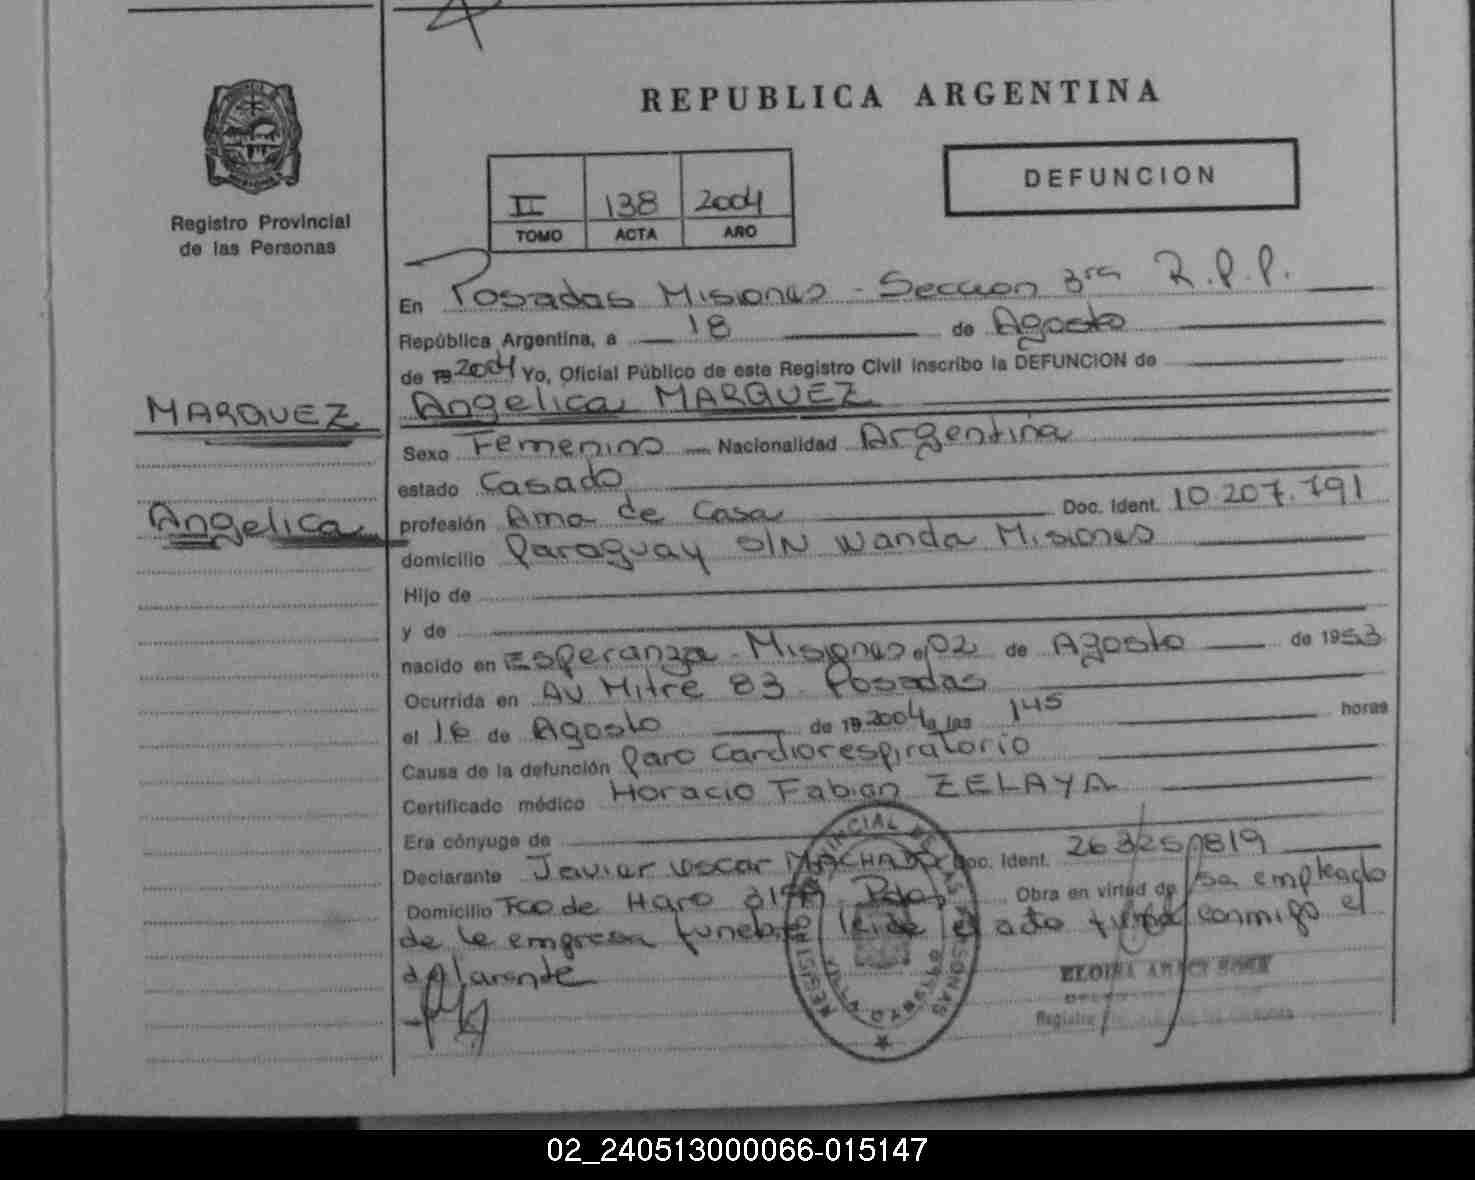 REPUBLICA ARGENTINA
Registro Provincial
de las Personas
II 138 2004
TOMO ACTA AÑO
DEFUNCION
En Posadas Misiones - Seccion 3ra R.P.P.
República Argentina, a 18 de Agosto
de 19 2004 Yo, Oficial Público de este Registro Civil inscribo la DEFUNCION de
MARQUEZ
Angelica MARQUEZ
Sexo Femenino Nacionalidad Argentina
estado Casado
Angelica
profesión Ama de Casa Doc. Ident. 10.207.791
domicilio Paraguay S/N Wanda Misiones
Hijo de
y de
nacido en Esperanza - Misiones el 02 de Agosto de 1953
Ocurrida en AV Mitre 83 Posadas
el 16 de Agosto de 19 2004 a las 145 horas
Causa de la defunción Paro Cardiorespiratorio
Certificado médico Horacio Fabian ZELAYA
Era cónyuge de
Declarante Javier Oscar MACHADO Doc. Ident.
Domicilio Fco de Haro Obra en virtud de empleado
de la empresa funebre el acto conmigo el
REGISTRO PROVINCIAL DE LAS PERSONAS
Registro
02_240513000066-015147